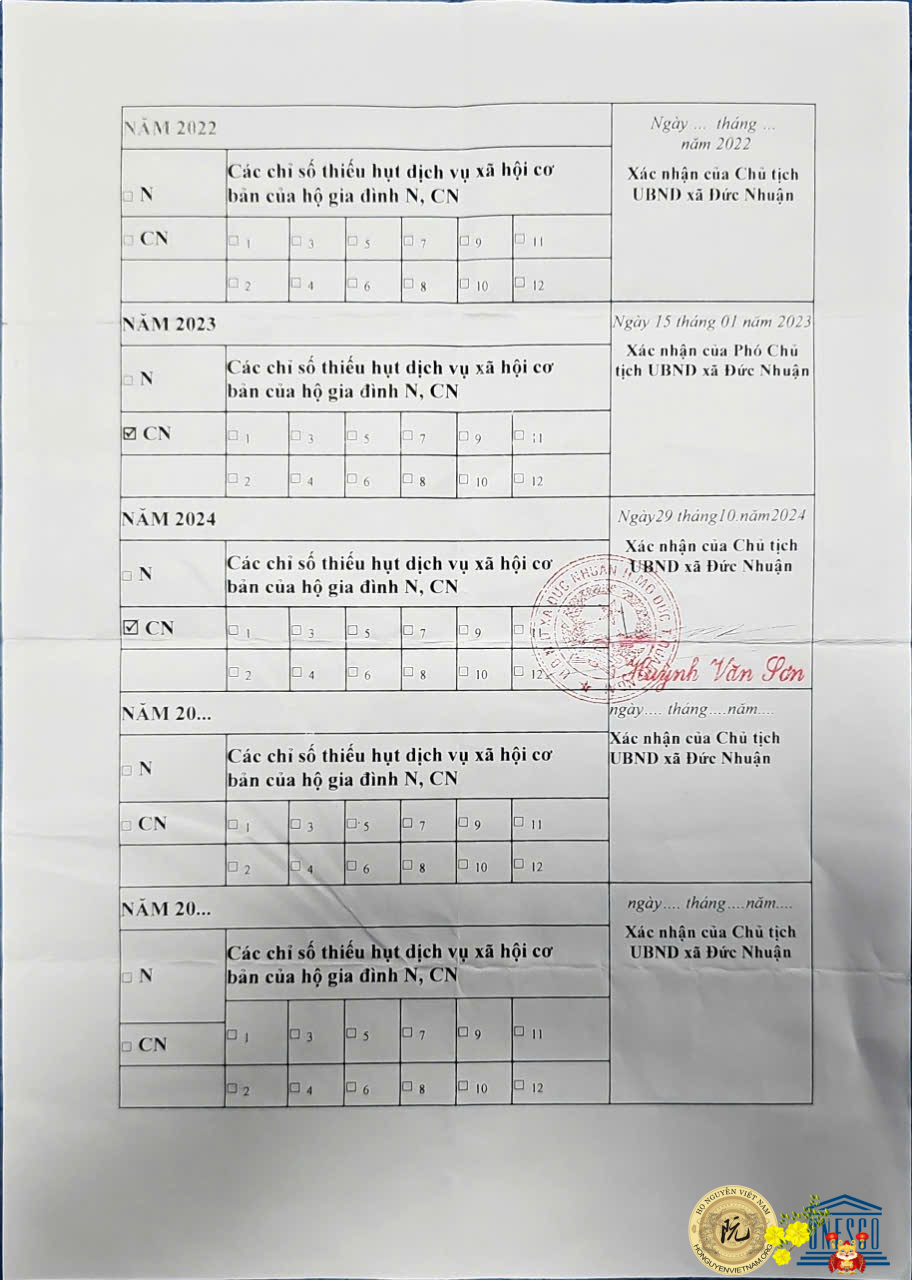 NĂM 2022
Ngày ... tháng ...
năm 2022
Xác nhận của Chủ tịch
UBND xã Đức Nhuận
☐ N
Các chỉ số thiếu hụt dịch vụ xã hội cơ
bản của hộ gia đình N, CN
☐ CN
☐ 1 ☐ 3 ☐ 5 ☐ 7 ☐ 9 ☐ 11
☐ 2 ☐ 4 ☐ 6 ☐ 8 ☐ 10 ☐ 12
NĂM 2023
Ngày 15 tháng 01 năm 2023
Xác nhận của Phó Chủ
tịch UBND xã Đức Nhuận
☐ N
Các chỉ số thiếu hụt dịch vụ xã hội cơ
bản của hộ gia đình N, CN
☑ CN
☐ 1 ☐ 3 ☐ 5 ☐ 7 ☐ 9 ☐ 11
☐ 2 ☐ 4 ☐ 6 ☐ 8 ☐ 10 ☐ 12
NĂM 2024
Ngày29 tháng10.năm2024
Xác nhận của Chủ tịch
UBND xã Đức Nhuận
☐ N
Các chỉ số thiếu hụt dịch vụ xã hội cơ
bản của hộ gia đình N, CN
☑ CN
☐ 1 ☐ 3 ☐ 5 ☐ 7 ☐ 9 ☐ 11
☐ 2 ☐ 4 ☐ 6 ☐ 8 ☐ 10 ☐ 12
ĐỨC NHUẬN H.MỘ ĐỨC
Huỳnh Văn Sơn
NĂM 20...
ngày.... tháng....năm....
Xác nhận của Chủ tịch
UBND xã Đức Nhuận
☐ N
Các chỉ số thiếu hụt dịch vụ xã hội cơ
bản của hộ gia đình N, CN
☐ CN
☐ 1 ☐ 3 ☐ 5 ☐ 7 ☐ 9 ☐ 11
☐ 2 ☐ 4 ☐ 6 ☐ 8 ☐ 10 ☐ 12
NĂM 20...
ngày.... tháng....năm....
Xác nhận của Chủ tịch
UBND xã Đức Nhuận
☐ N
Các chỉ số thiếu hụt dịch vụ xã hội cơ
bản của hộ gia đình N, CN
☐ CN
☐ 1 ☐ 3 ☐ 5 ☐ 7 ☐ 9 ☐ 11
☐ 2 ☐ 4 ☐ 6 ☐ 8 ☐ 10 ☐ 12
HỌ NGUYỄN VIỆT NAM
阮
HONGUYENVIETNAM.ORG
UNESCO